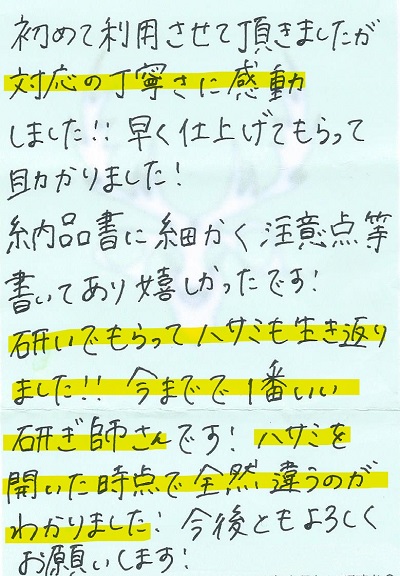 初めて利用させて頂きましたが
対応の丁寧さに感動
しました!! 早く仕上げてもらって
助かりました!
納品書に細かく注意点等
書いてあり嬉しかったです!
研いでもらってハサミも生き返り
ました!! 今までで1番いい
研ぎ師さんです! ハサミを
開いた時点で全然違うのが
わかりました! 今後ともよろしく
お願いします!